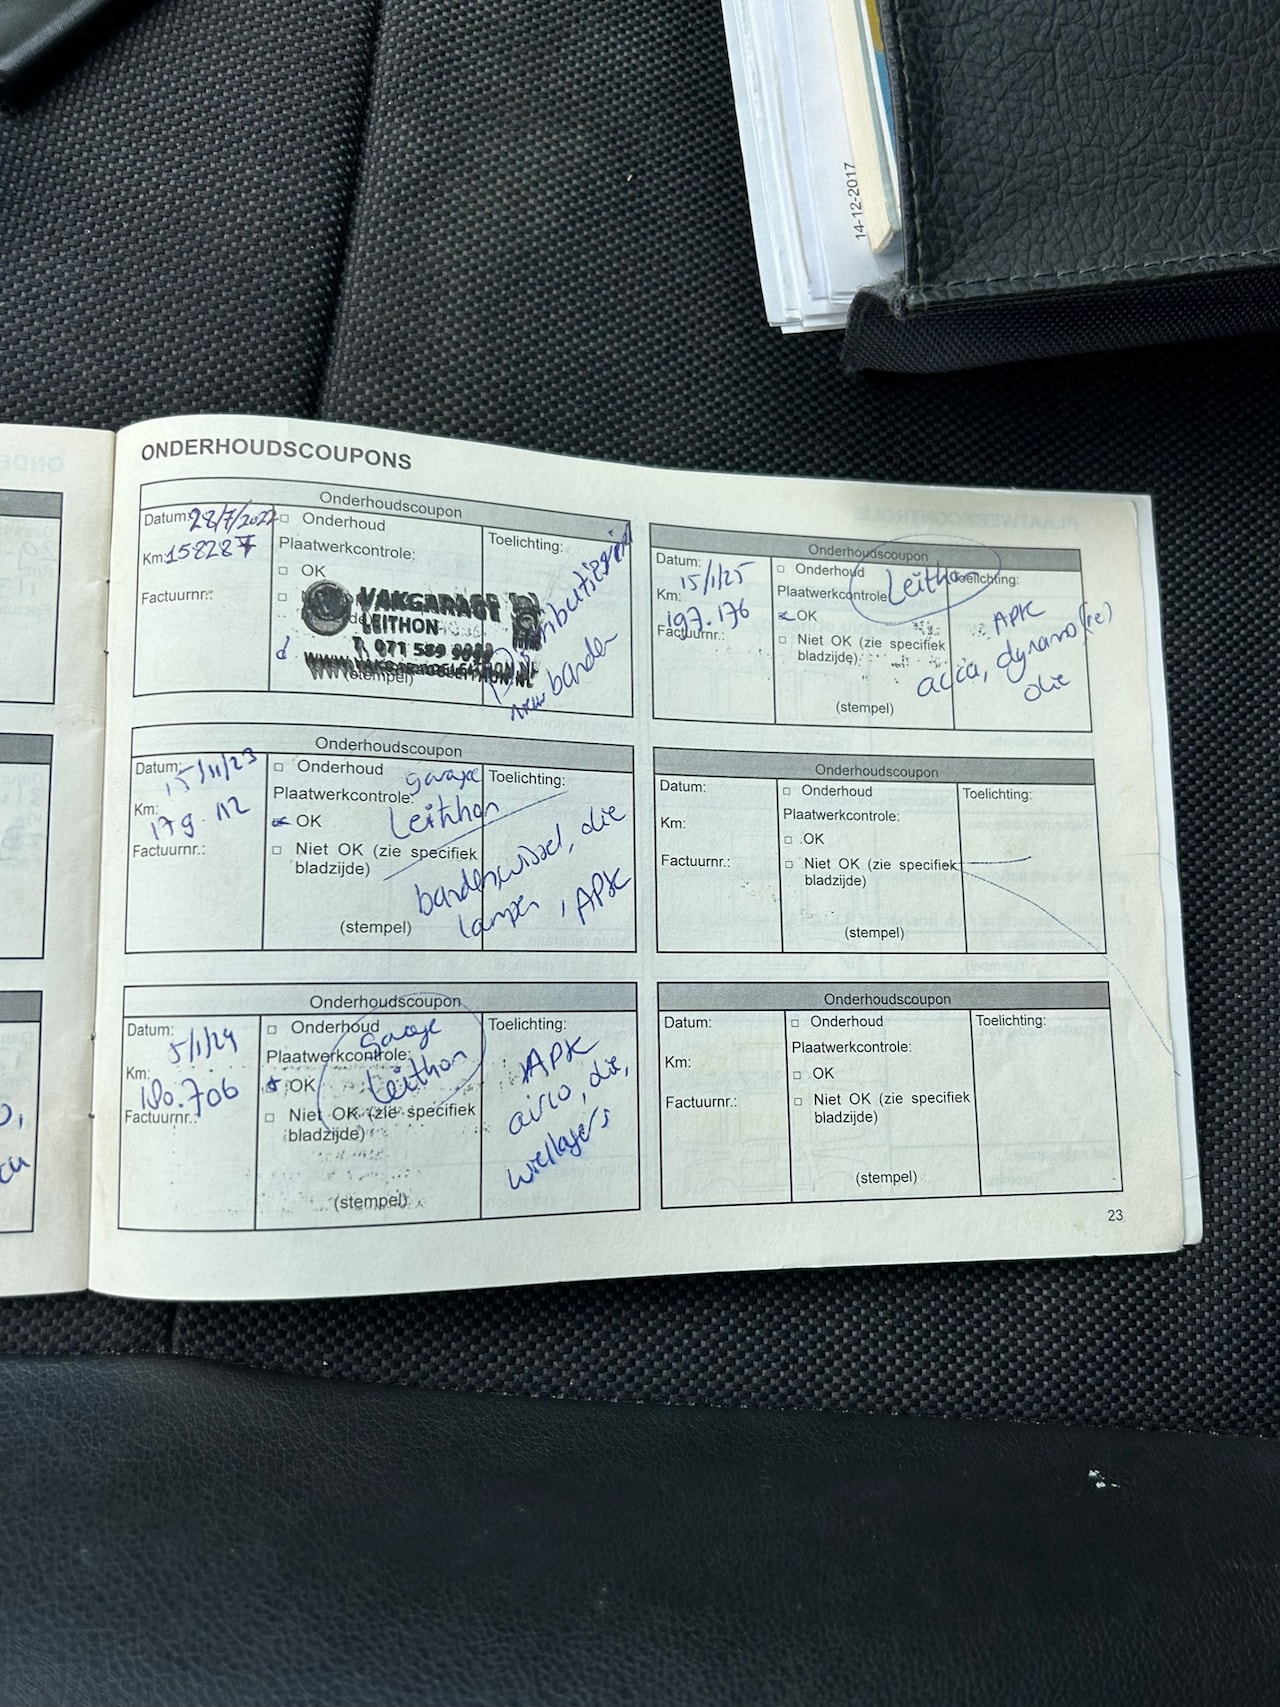 14-12-2017
ONDERHOUDSCOUPONS
Onderhoudscoupon
Datum: 28/7/2022
Km: 158287
Factuurnr.:
Onderhoud
Plaatwerkcontrole:
OK
VAKGARAGE
LEITHON
T. 071 589
(stempel)
Toelichting:
banden
Onderhoudscoupon
Datum: 15/11/23
Km: 179.112
Factuurnr.:
Onderhoud
Plaatwerkcontrole:
garage
Leithon
OK
Niet OK (zie specifiek
bladzijde)
(stempel)
Toelichting:
bandenwissel, olie
lampen, APK
Onderhoudscoupon
Datum: 5/1/24
Km: 180.706
Factuurnr.:
Onderhoud
Plaatwerkcontrole:
Garage
Leithon
OK
Niet OK (zie specifiek
bladzijde)
(stempel)
Toelichting:
APK
airco, olie,
wiellagers
Onderhoudscoupon
Datum: 15/1/25
Km: 197.176
Factuurnr.:
Onderhoud
Plaatwerkcontrole:
Leithon
OK
Niet OK (zie specifiek
bladzijde)
(stempel)
Toelichting:
APK
accu, dynamo (re)
olie
Onderhoudscoupon
Datum:
Km:
Factuurnr.:
Onderhoud
Plaatwerkcontrole:
OK
Niet OK (zie specifiek
bladzijde)
(stempel)
Toelichting:
Onderhoudscoupon
Datum:
Km:
Factuurnr.:
Onderhoud
Plaatwerkcontrole:
OK
Niet OK (zie specifiek
bladzijde)
(stempel)
Toelichting:
23